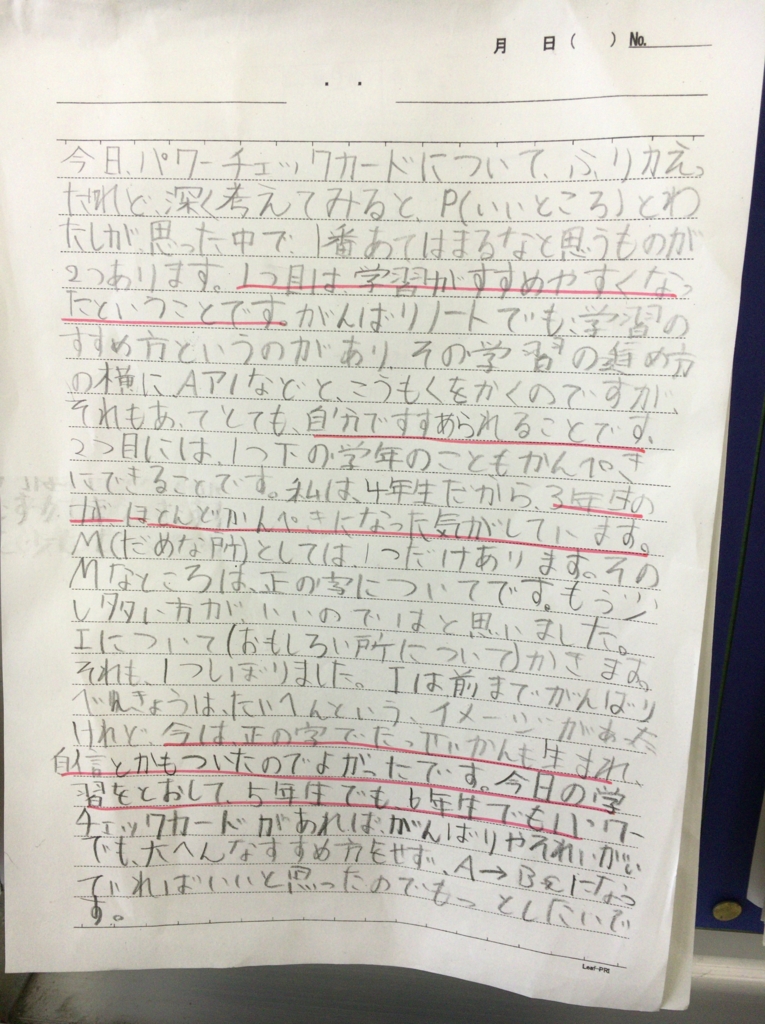 月 日( ) No.
今日、パワーチェックカードについて、ふりかえっ
たけれど、深く考えてみると、P(いいところ)とわ
たしが、思った中で、1番あてはまるなと思うものが
2つあります。1つ目は、学習がすすめやすくなっ
たということです。がんばりノートでも、学習の
すすめ方というのがあり、その学習の進め方
の横に、AアIなどと、こうもくをかくのですが、
それもあってとても、自分ですすめられることです。
2つ目には、1つ下の学年のこともかんぺき
にできることです。私は、4年生だから、3年生の
が ほとんどかんぺきになった気がしています。
M(だめな所)としては、1つだけあります。その
Mなところは、正の字についてです。もう少
し多い方が、いいのではと思いました。
Iについて(おもしろい所について)かきます。
それも、1つしぼりました。Iは前までがんばり
べんきょうは、たいへんという、イメージがあった
けれど、今は、正の字でたっせいかんも生まれ、
自信とかもついたのでよかったです。今日の学
習をとおして、5年生でも、6年生でもパワー
チェックカードがあれば、がんばりやそれいがい
でも、大へんなすすめ方をせず、A→Bになっ
ていればいいと思ったのでもっとしたいで
す。
Leaf-PRI